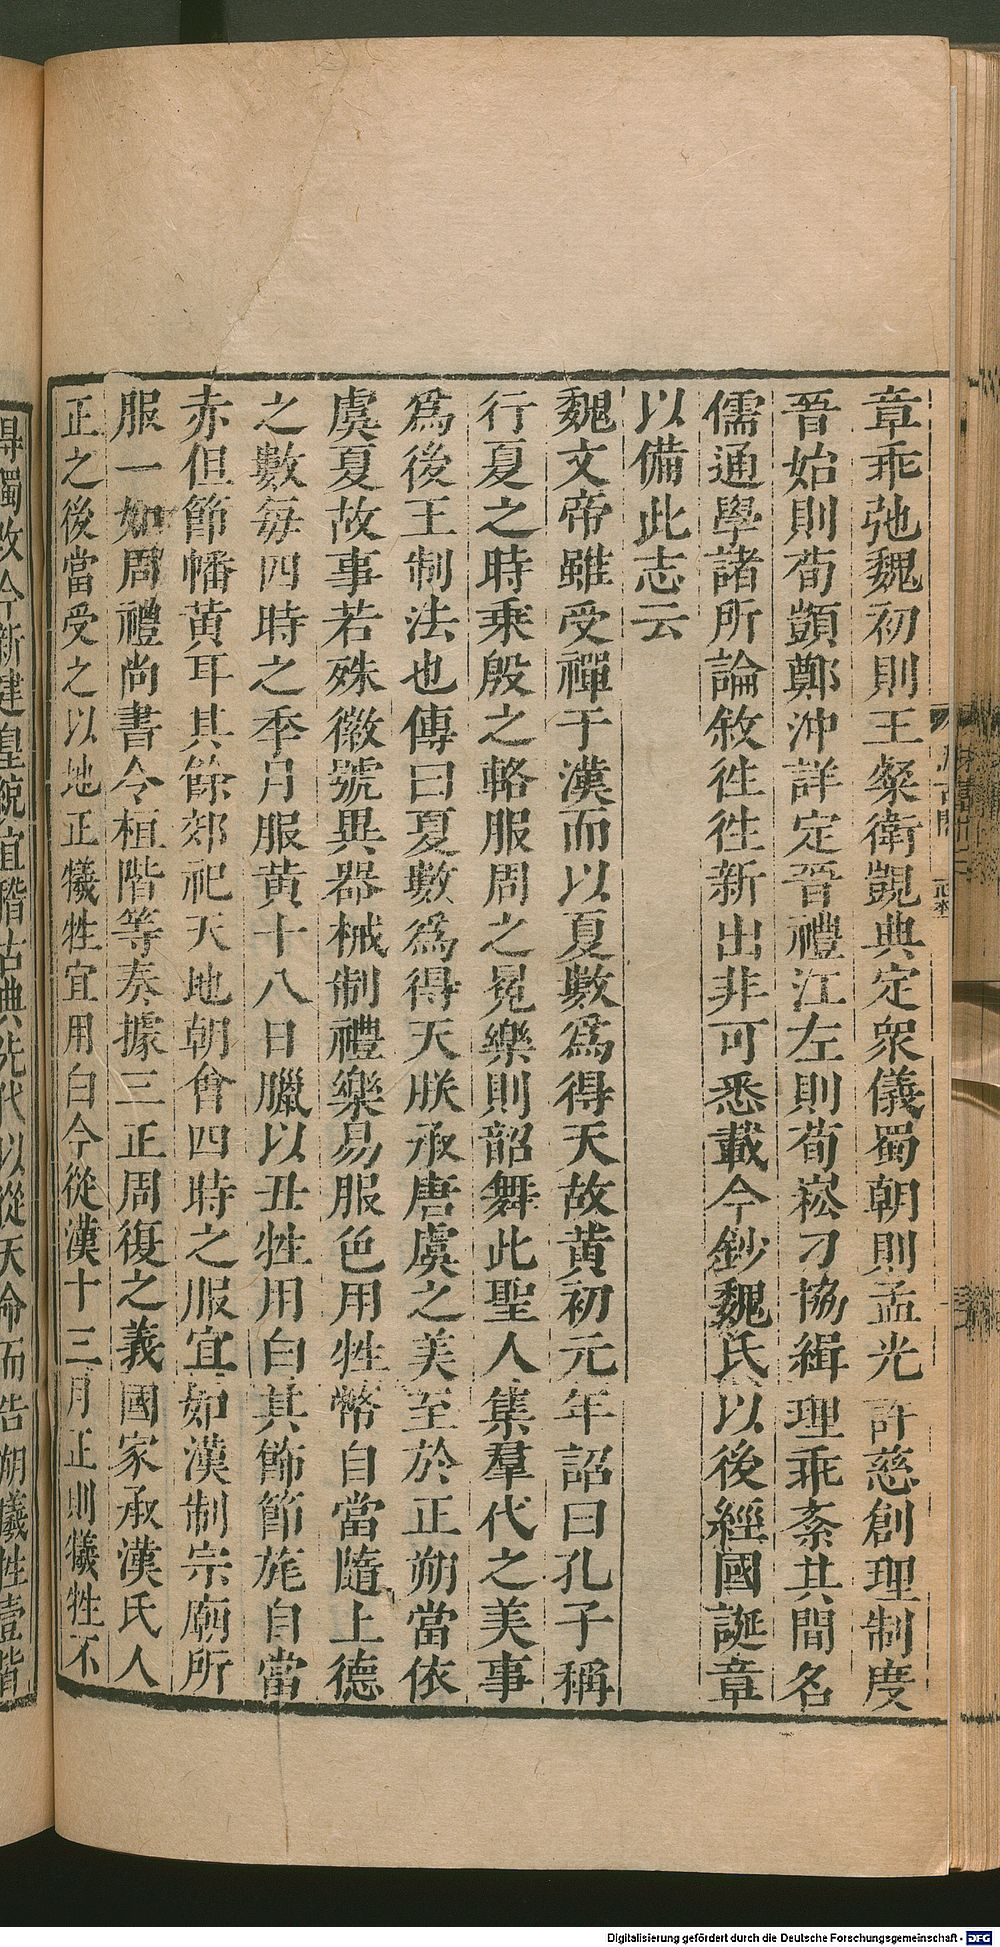 章乖弛魏初則王粲衛覬典定眾儀蜀朝則孟光許慈創理制度
晉始則荀顗鄭沖詳定晉禮江左則荀崧刁協緝理乖紊其間名
儒通學諸所論敘往往新出非可悉載今鈔魏氏以後經國誕章
以備此志云
魏文帝雖受禪于漢而以夏數爲得天故黃初元年詔曰孔子稱
行夏之時乘殷之輅服周之冕樂則韶舞此聖人集羣代之美事
爲後王制法也傳曰夏數爲得天朕承唐虞之美至於正朔當依
虞夏故事若殊徽號異器械制禮樂易服色用牲幣自當隨土德
之數每四時之季月服黃十八日臘以丑牲用白其飾節旄自當
赤但節幡黃耳其餘郊祀天地朝會四時之服宜如漢制宗廟所
服一如周禮尚書令桓階等奏據三正周復之義國家承漢氏人
正之後當受之以地正犧牲宜用白今從漢十三月正則犧牲不
得獨改今新建皇統宜稽古典先代以從天命而告朔犧牲壹皆
Digitalisierung gefördert durch die Deutsche Forschungsgemeinschaft - DFG